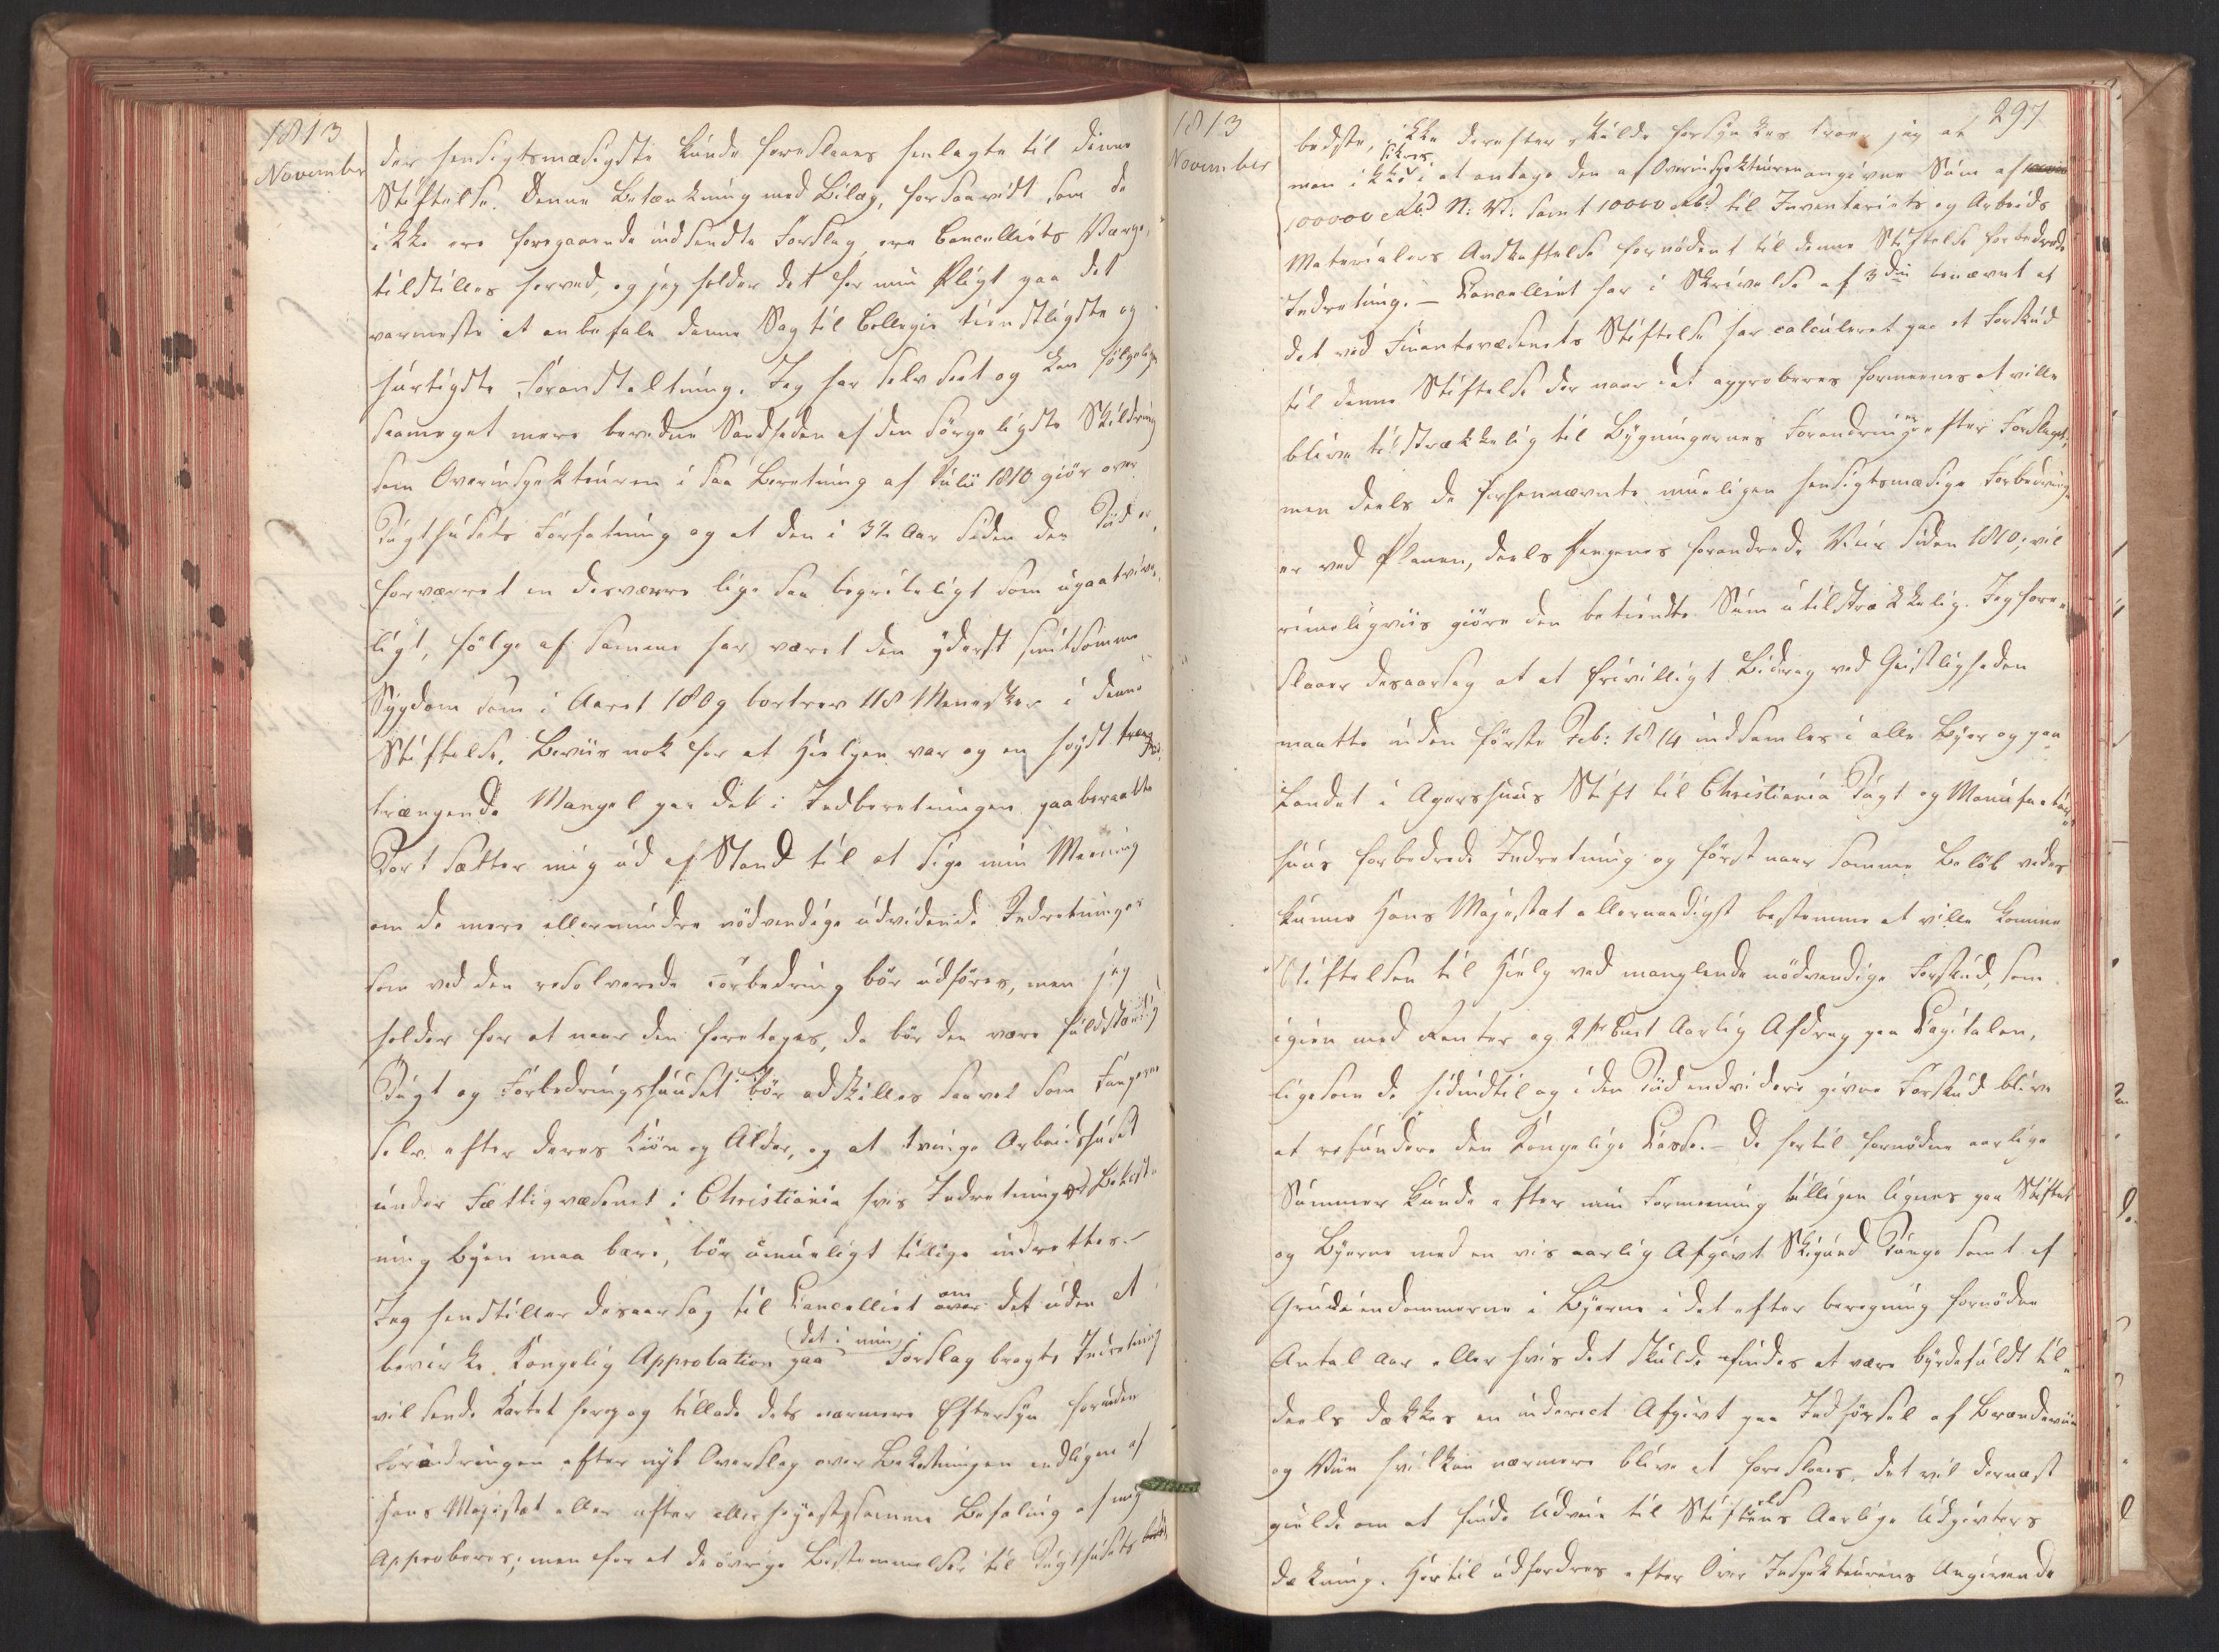 1813
November
der hensigtsmæsigste kunde foreslaaes henlagte til denne
Stiftelse. Denne Betænkning med Bilag, forsaavidt som de
ikke ere foregaaende indsendte Forslag, ere Cancelliets
tilstilles herved, og jeg holder det for min Pligt paa det
varmeste at anbefale denne Sag til Collegii tienstligste og
hurtigste Foranstaltning. Jeg har selv seet og kan følgelig
saameget mere bevidne Sandheden af den sørgeligste Skildring
som Overinspekteuren i saa Beretning af Julii 1810 giør over
Tugthusets Forfatning og at den i 3½ Aar siden den Tiid er
forværret en desværre lige saa begribeligt som
ligt, følge af samme har været den yderst smitsomme
Sygdom som i Aaret 1809 bortrev 118 Mennesker i denne
Stiftelse. Beviis nok for at Hielpen var og en høyst
trængende Mangel paa det i Indberetningen paaberaabte
Kort sætter mig ud af Stand til at sige min Meening
om de mere eller mindre nødvendige udvidende Indretninger
som ved den resolverede Forbedring bør udføres, men jeg
holder for at naar den foretages, da bør den være fuldstændig
Tugt og Forbedringshuuset bør adskilles saavel som Fangerne
selv efter deres Kiøn og Alder, og at tvinge Arbeidshuset
under Fattigvæsenet i Christiania hvis Indretning og Bekost-
ning Byen maa bære, bør umueligt tillige indrettes.
Jeg henstiller desaarsag til Cancelliet om det uden at
bevirke Kongelig Approbation paa (det i min) Forslag bragte Indretning
vil sende Kartet herop og tillade dets nærmere Eftersyn forinden
Forandringen efter nyt Overslag over Bekostningen endligen af
Hans Majestæt eller efter allerhøyestsamme Befaling af mig
Approberes; men for at de øvrige Bestemmelser til Tugthusets
1813
November
297
bedste, ikke derefter skulde forsinkes troer jeg at
man ikke i at antage den af Overinspekteuren angivne Sum af
100000 Rbd. N: V: samt 10000 Rbd. til Inventariets og Arbeids
Materialers Anskaffelse fornødent til denne Stiftelses forbedrede
Indretning. – Cancelliet har i Skrivelse af 3die benævnt at
det ved Finantsvæsenets Stiftelse har calculeret paa et Forskud
til denne Stiftelse der naar det approberes formeenes at ville
blive tilstrækkelig til Bygningernes Forandringer efter Forslaget,
men deels de forhennævnte mueligen hensigtsmæsige Forbedringer
er ved Planen, deels Pengenes forandrede Værd siden 1810, vil
rimeligviis giøre den betiente Sum utilstrækkelig. Jeg fore-
slaaer desaarsag at et frivilligt Bidrag ved Geistligheden
maatte inden første Feb: 1814 indsamles i alle Byer og paa
Landet i Agershuus Stift til Christiania Tugt og Manufactur
huus forbedrede Indretning og først naar samme Beløb vides
kunne Hans Majestæt allernaadigst bestemme at ville komme
Stiftelsen til Hielp ved manglende nødvendige Forskud, som
igien med Renter og 2 pr Cent Aarlig Afdrag paa Capitalen,
ligesom de hidindtil og i den Tiid endvidere givne Forskud blive
at refundere den Kongelige Casse. – De hertil fornødne aarlige
Summer kunde efter min Formeening billigen lignes paa Stiftet
og Byerne med en vis aarlig Afgivt Skipund Tunge samt af
Grundeiendommerne i Byerne i det efter beregning fornødne
Antal Aar eller hvis det skulde findes at være byrdefuldt til-
deels dækkes en inderect Afgivt paa Indførsel af Brændeviin
og Viin hvilken nærmere blive at foreslaaes, det vil dernæst
gielde om at finde Udveie til Stiftelsens Aarlige Udgivters
dækning. Hertil udfordres efter Over Inspekteurens Angivende